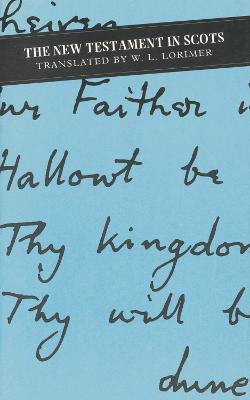 heiven
THE NEW TESTAMENT IN SCOTS
TRANSLATED BY W. L. LORIMER
Faither
Hallowt be
Thy kingdom
Thy will b
dune